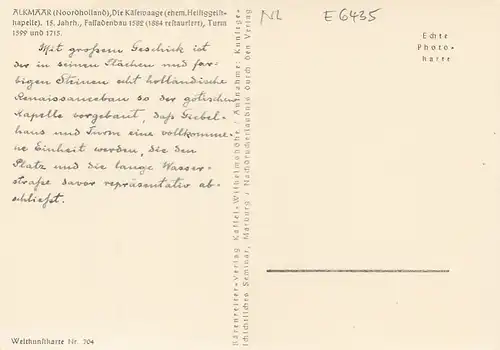 ALKMAAR (Noordholland), Die Käsewaage (ehem. Heiliggeist-
kapelle). 15. Jahrh., Fassadenbau 1582 (1884 restauriert), Turm
1599 und 1715.
Mit großem Geschick ist
der in seinen Flächen und far-
bigen Steinen echt holländische
Renaissancebau so der gotischen
Kapelle vorgebaut, daß Giebel-
haus und Turm eine vollkomme-
ne Einheit werden, die den
Platz und die lange Wasser-
straße davor repräsentativ ab-
schließt.
Weltkunstkarte Nr. 204
NL E 6435
Bärenreiter-Verlag Kassel-Wilhelmshöhe / Aufnahme: Kunstge-
schichtliches Seminar, Marburg / Nachdruckerlaubnis durch den Verlag
Echte
Photo-
karte